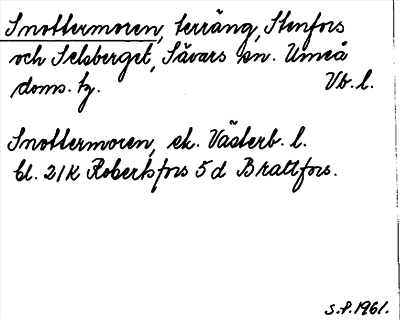 Snottermoren, terräng, Stenfors
och Selsberget, Sävars sn. Umeå
doms. tg. Vb. l.
Snottermoren, ek. Västerb. l.
bl. 21K Robertsfors 5d Brattfors.
S.P. 1961.